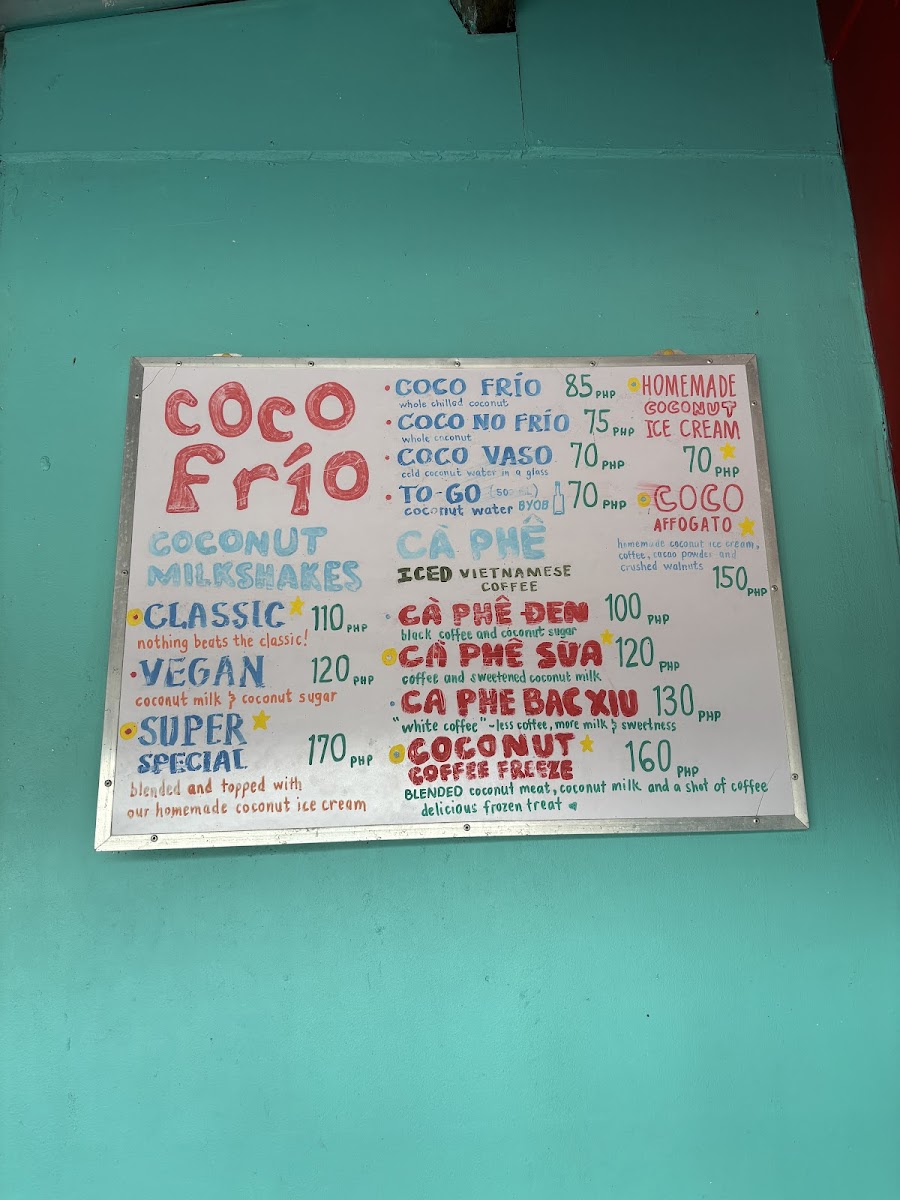 COCO
Frío
COCONUT
MILKSHAKES
CLASSIC 110 PHP
nothing beats the classic!
VEGAN 120 PHP
coconut milk & coconut sugar
SUPER
SPECIAL 170 PHP
blended and topped with
our homemade coconut ice cream
COCO FRÍO 85 PHP
whole chilled coconut
COCO NO FRÍO 75 PHP
whole coconut
COCO VASO 70 PHP
cold coconut water in a glass
TO-GO 70 PHP
coconut water BYOB
CÀ PHÊ
ICED VIETNAMESE
COFFEE
CÀ PHÊ ĐEN 100 PHP
black coffee and coconut sugar
CÀ PHÊ SŪA 120 PHP
coffee and sweetened coconut milk
CA PHE BAC XIU 130 PHP
"white coffee" - less coffee, more milk & sweetness
COCONUT
COFFEE FREEZE 160 PHP
BLENDED coconut meat, coconut milk and a shot of coffee
delicious frozen treat
HOMEMADE
COCONUT
ICE CREAM
70 PHP
COCO
AFFOGATO
homemade coconut ice cream,
coffee, cacao powder and
crushed walnuts 150 PHP